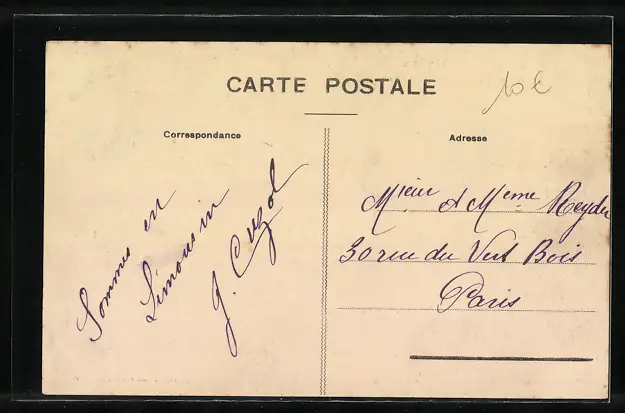 CARTE POSTALE
10 €
Correspondance
Adresse
Sommes en
Limousin
J. Cuzol
Mieur et Meme Reyder
30 rue du Vert Bois
Paris